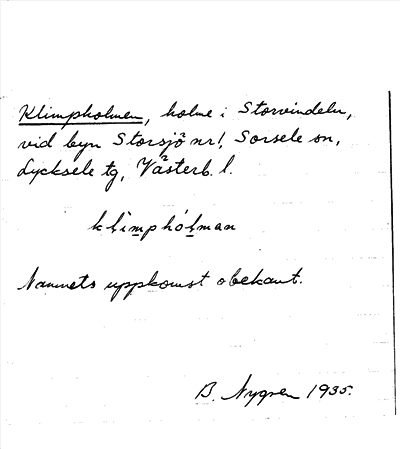 Klimpholmen, holme i Storvindeln,
vid byn Storsjö nr 1, Sorsele sn,
Lycksele tg, Västerb. l.
klìmphólman
Namnets uppkomst obekant.
B. Nygren 1935.